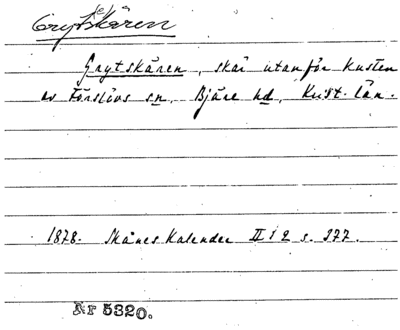 Gryt(s)kären
Grytskären, skär utanför kusten
av Förslövs sn, Bjäre hd, Krist. län.
1878. Skånes Kalender II: 2 s. 377.
Nr 5320.